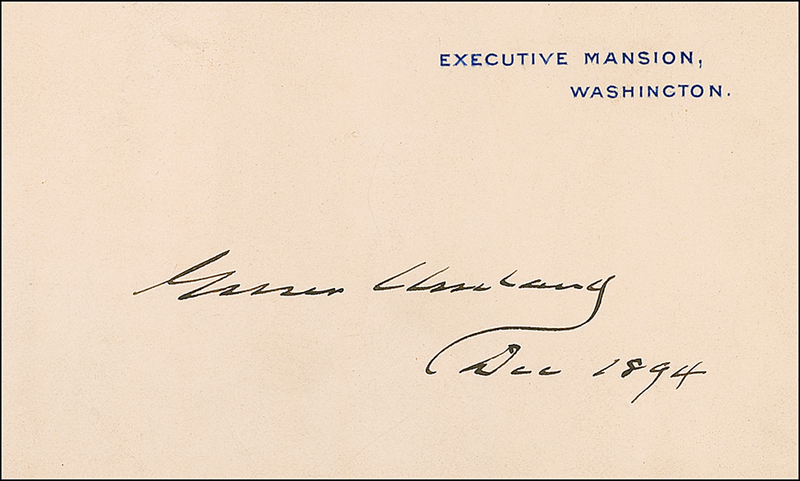 EXECUTIVE MANSION,
WASHINGTON.
Grover Cleveland
Dec 1894